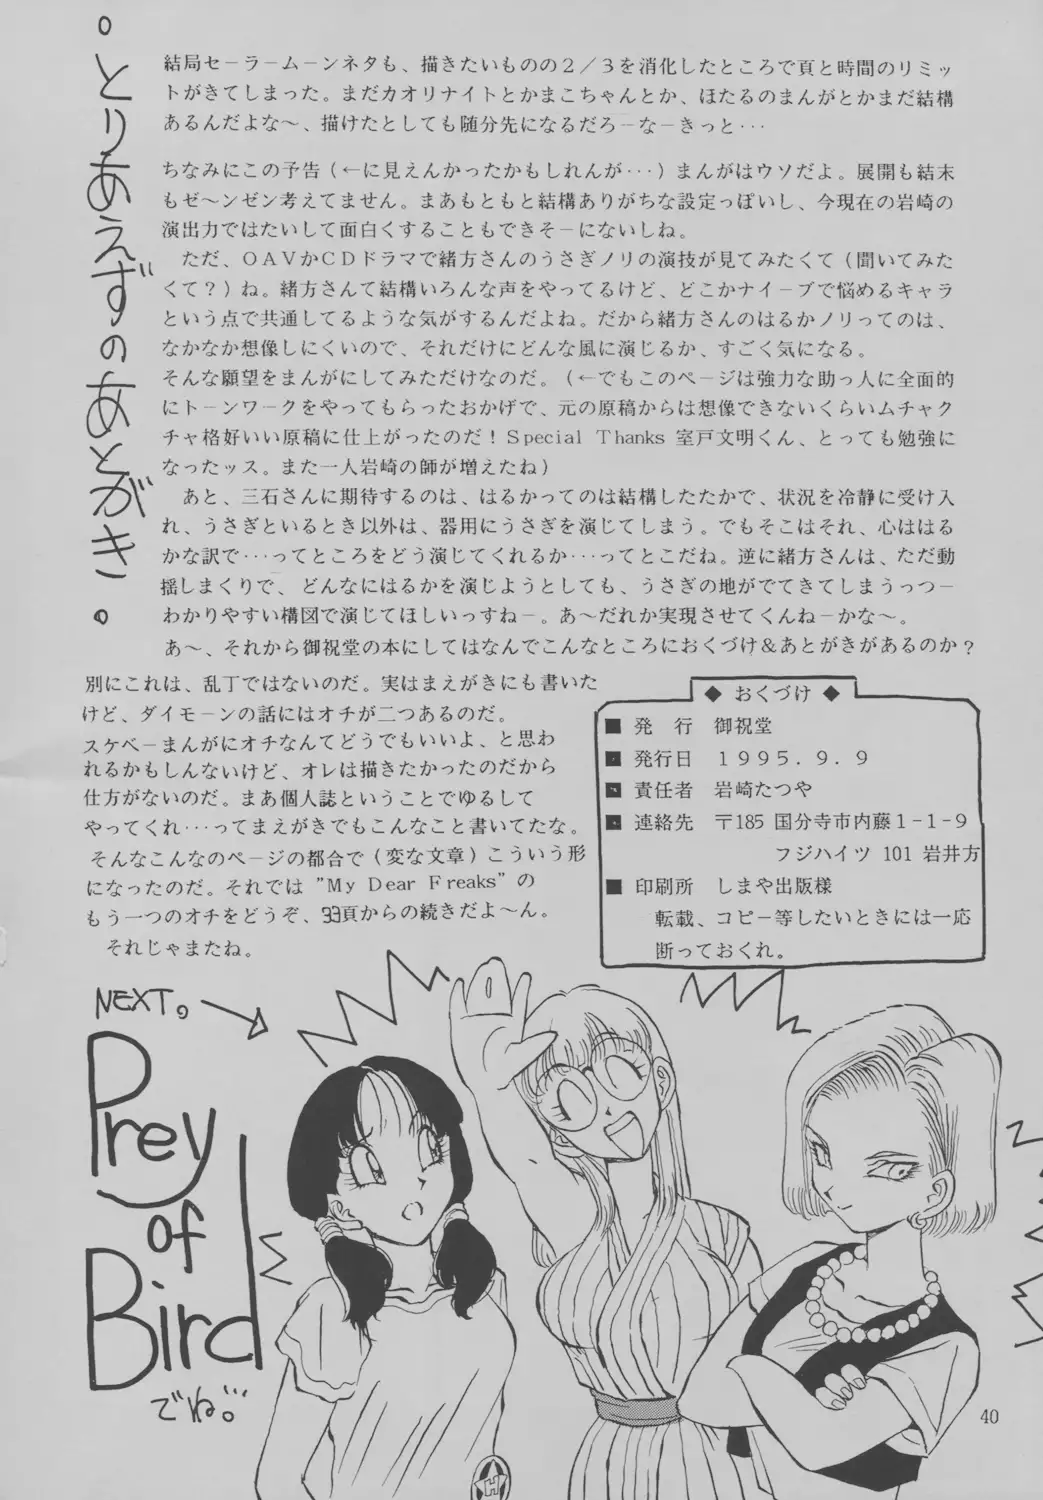 とりあえずのあとがき
結局セーラームーンネタも、描きたいものの2/3を消化したところで頁と時間のリミッ
トがきてしまった。まだカオリナイトとかまこちゃんとか、ほたるのまんがとかまだ結構
あるんだよな〜、描けたとしても随分先になるだろーなーきっと･･･
ちなみにこの予告(←に見えんかったかもしれんが･･･)まんがはウソだよ。展開も結末
もゼ〜ンゼン考えてません。まあもともと結構ありがちな設定っぽいし、今現在の岩崎の
演出力ではたいして面白くすることもできそーにないしね。
ただ、OAVかCDドラマで緒方さんのうさぎノリの演技が見てみたくて(聞いてみた
くて?)ね。緒方さんて結構いろんな声をやってるけど、どこかナイーブで悩めるキャラ
という点で共通してるような気がするんだよね。だから緒方さんのはるかノリってのは、
なかなか想像しにくいので、それだけにどんな風に演じるか、すごく気になる。
そんな願望をまんがにしてみただけなのだ。(←でもこのページは強力な助っ人に全面的
にトーンワークをやってもらったおかげで、元の原稿からは想像できないくらいムチャク
チャ格好いい原稿に仕上がったのだ!Special Thanks 室戸文明くん、とっても勉強に
なったッス。また一人岩崎の師が増えたね)
あと、三石さんに期待するのは、はるかってのは結構したたかで、状況を冷静に受け入
れ、うさぎといるとき以外は、器用にうさぎを演じてしまう。でもそこはそれ、心ははる
かな訳で･･･ってところをどう演じてくれるか･･･ってとこだね。逆に緒方さんは、ただ動
揺しまくりで、どんなにはるかを演じようとしても、うさぎの地がでてきてしまうっつー
わかりやすい構図で演じてほしいっすねー。あ〜だれか実現させてくんねーかな〜。
あ〜、それから御祝堂の本にしてはなんでこんなところにおくづけ&あとがきがあるのか?
別にこれは、乱丁ではないのだ。実はまえがきにも書いた
けど、ダイモーンの話にはオチが二つあるのだ。
スケベーまんがにオチなんてどうでもいいよ、と思わ
れるかもしんないけど、オレは描きたかったのだから
仕方がないのだ。まあ個人誌ということでゆるして
やってくれ･･･ってまえがきでもこんなこと書いてたな。
そんなこんなのページの都合で(変な文章)こういう形
になったのだ。それでは"My Dear Freaks"の
もう一つのオチをどうぞ、33頁からの続きだよ〜ん。
それじゃまたね。
◆ おくづけ ◆
■ 発 行 御祝堂
■ 発行日 1995.9.9
■ 責任者 岩崎たつや
■ 連絡先 〒185 国分寺市内藤1-1-9
フジハイツ 101 岩井方
■ 印刷所 しまや出版様
転載、コピー等したいときには一応
断っておくれ。
NEXT。
Prey
of
Bird
でね･･･。
H
40